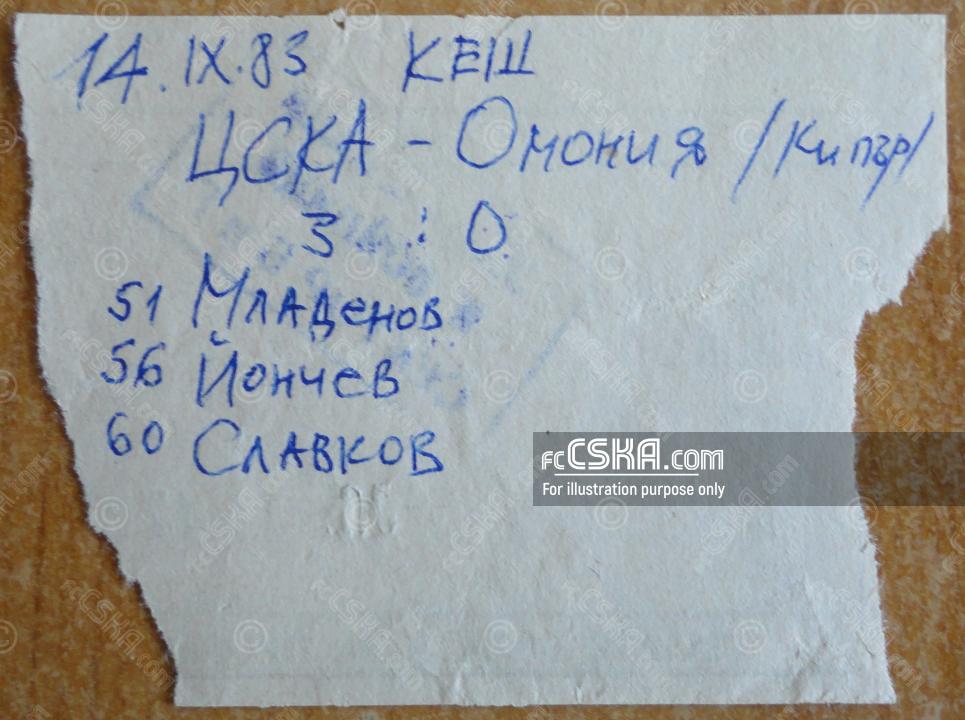 14.IX.83 КЕШ
ЦСКА - Омония /Кипър/
3 : 0
51 Младенов
56 Йончев
60 Славков
fcCSKA.com
For illustration purpose only